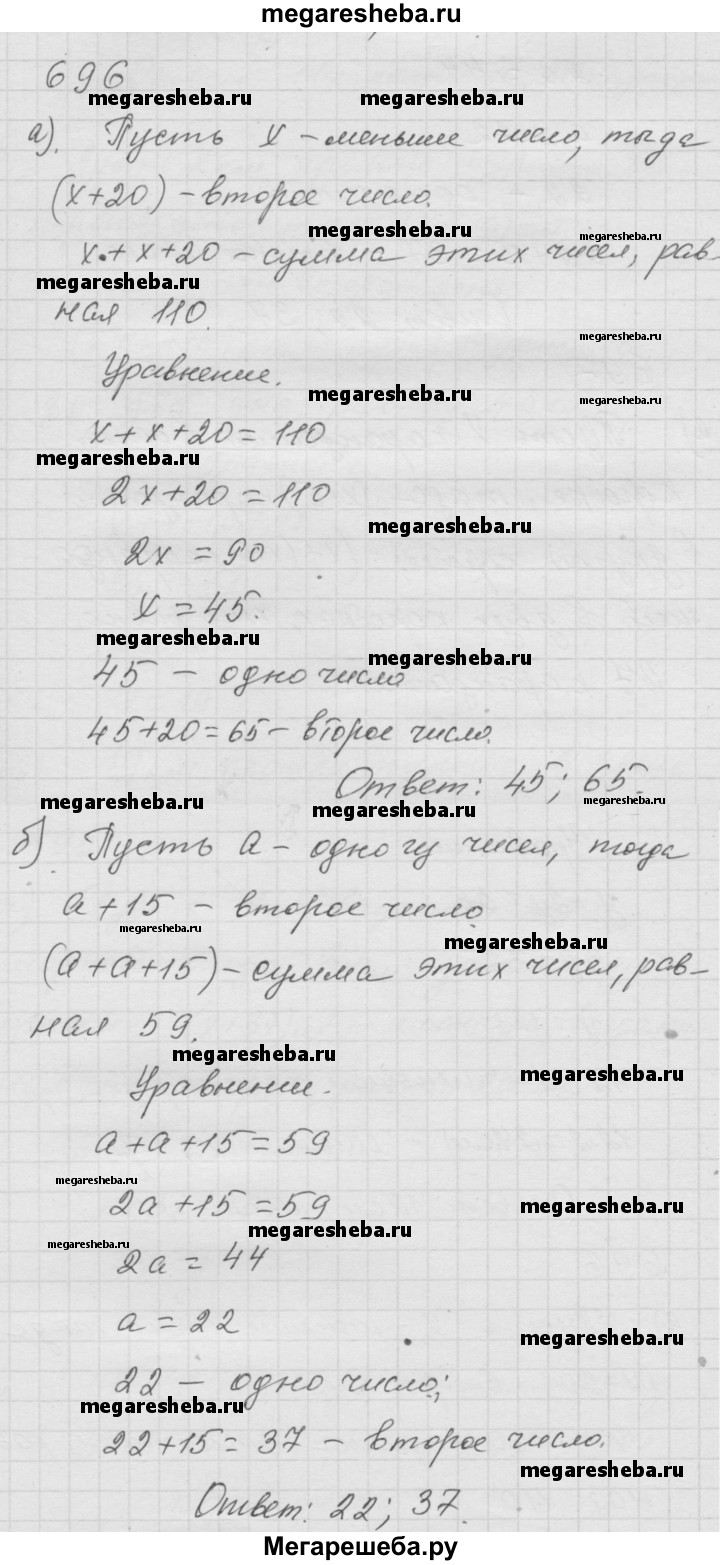 megaresheba.ru
696
megaresheba.ru megaresheba.ru
а). Пусть x – меньшее число, тогда
(x+20) – второе число.
megaresheba.ru megaresheba.ru
x + x+20 – сумма этих чисел, рав-
megaresheba.ru
ная 110.
megaresheba.ru
Уравнение.
megaresheba.ru megaresheba.ru
x+x+20=110
megaresheba.ru
2x+20=110
megaresheba.ru
2x = 90
x = 45.
megaresheba.ru
megaresheba.ru
45 – одно число
45+20=65 – второе число.
Ответ: 45; 65.
megaresheba.ru megaresheba.ru megaresheba.ru
б) Пусть a – одно чисел, тогда
a+15 – второе число
megaresheba.ru megaresheba.ru
(a+a+15) – сумма этих чисел, рав-
ная 59.
megaresheba.ru
megaresheba.ru
Уравнение.
a+a+15=59
megaresheba.ru
2a+15=59
megaresheba.ru
megaresheba.ru
megaresheba.ru
2a = 44
a = 22
megaresheba.ru
22 – одно число;
megaresheba.ru
22+15=37 – второе число.
megaresheba.ru
Ответ: 22; 37.
Мегарешеба.ру